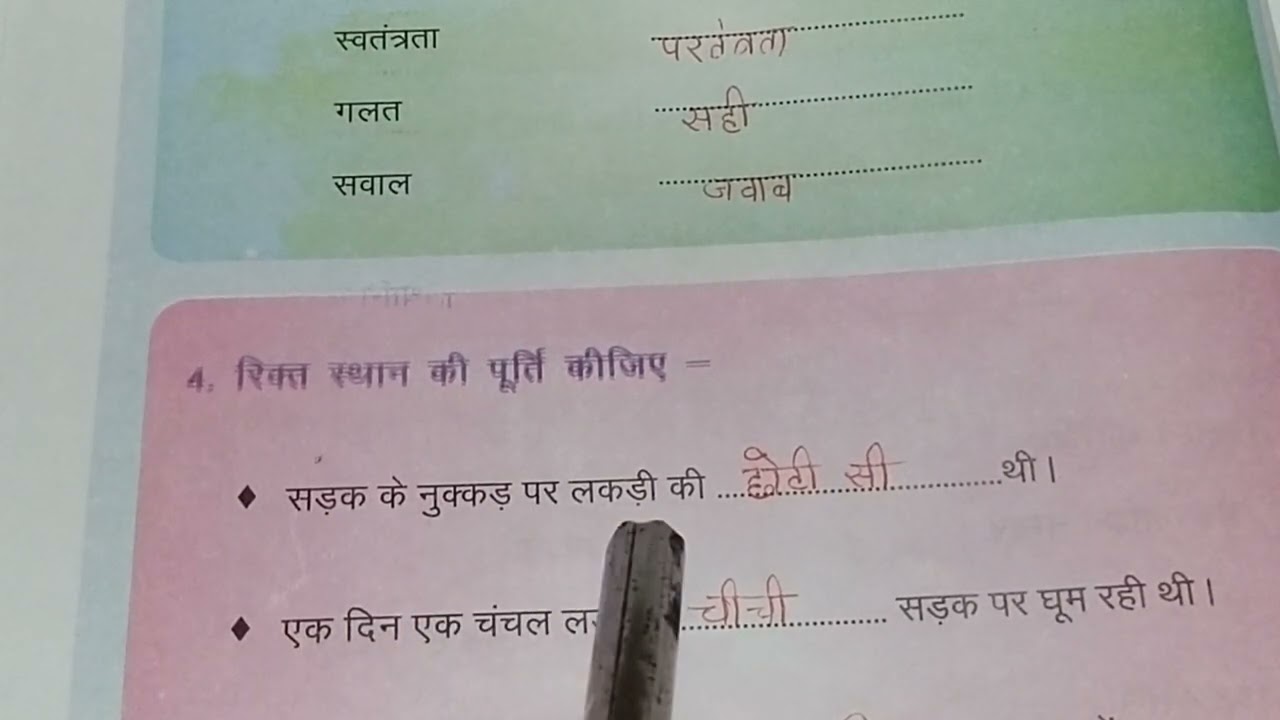 स्वतंत्रता परतंत्रता
गलत सही
सवाल जवाब
4. रिक्त स्थान की पूर्ति कीजिए –
♦ सड़क के नुक्कड़ पर लकड़ी की ....छोटी सी............थी।
♦ एक दिन एक चंचल चीची.......... सड़क पर घूम रही थी।